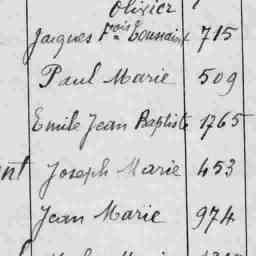 Olivier
Jacques Fçois Toussaint 715
Paul Marie 509
Emile Jean Baptiste 1765
Joseph Marie 453
Jean Marie 974